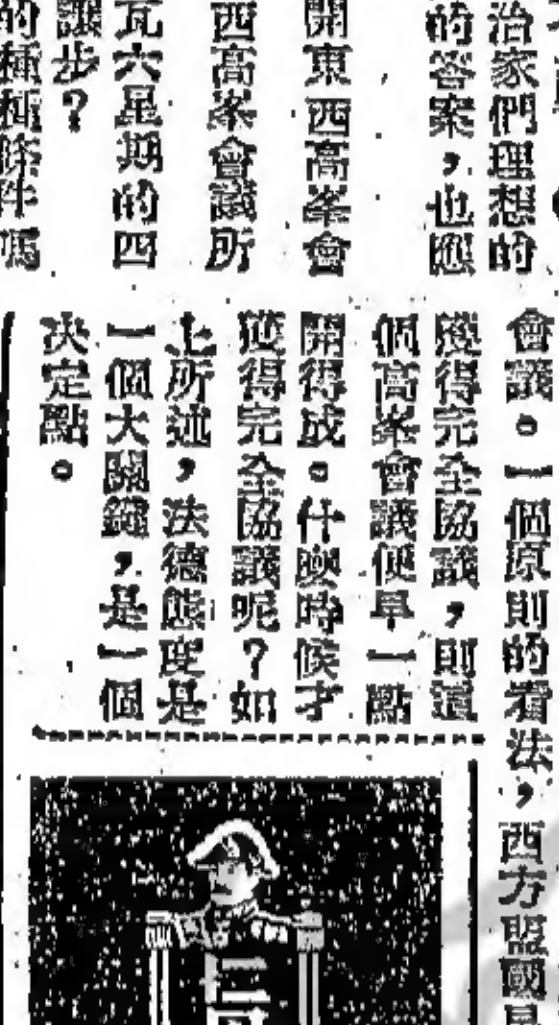 治家們理想的
的答案，也應
開東西高峯會
西高峯會議所
瓦六星期的四
讓步？
的種種條件嗎
會議。一個原則的看法，西方盟國
獲得完全協議，則這
個高峯會議便早一點
開得成。什麽時候才
獲得完全協議呢？如
上所述，法德態度是
一個大關鍵，是一個
决定點。
三